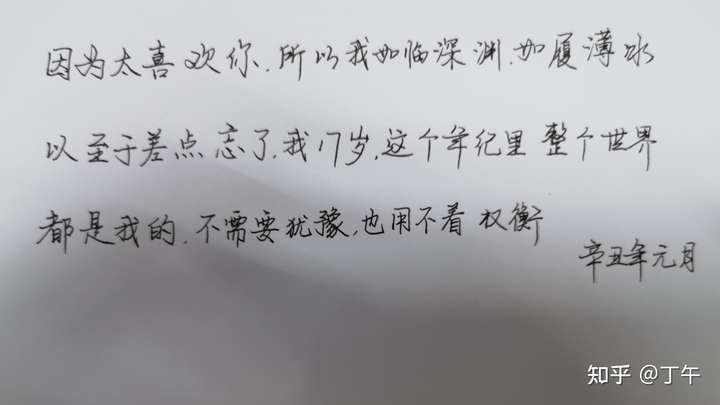 因为太喜欢你.所以我如临深渊.如履薄冰
以至于差点忘了.我17岁.这个年纪里整个世界
都是我的.不需要犹豫,也用不着权衡
辛丑年元月
知乎 @丁午